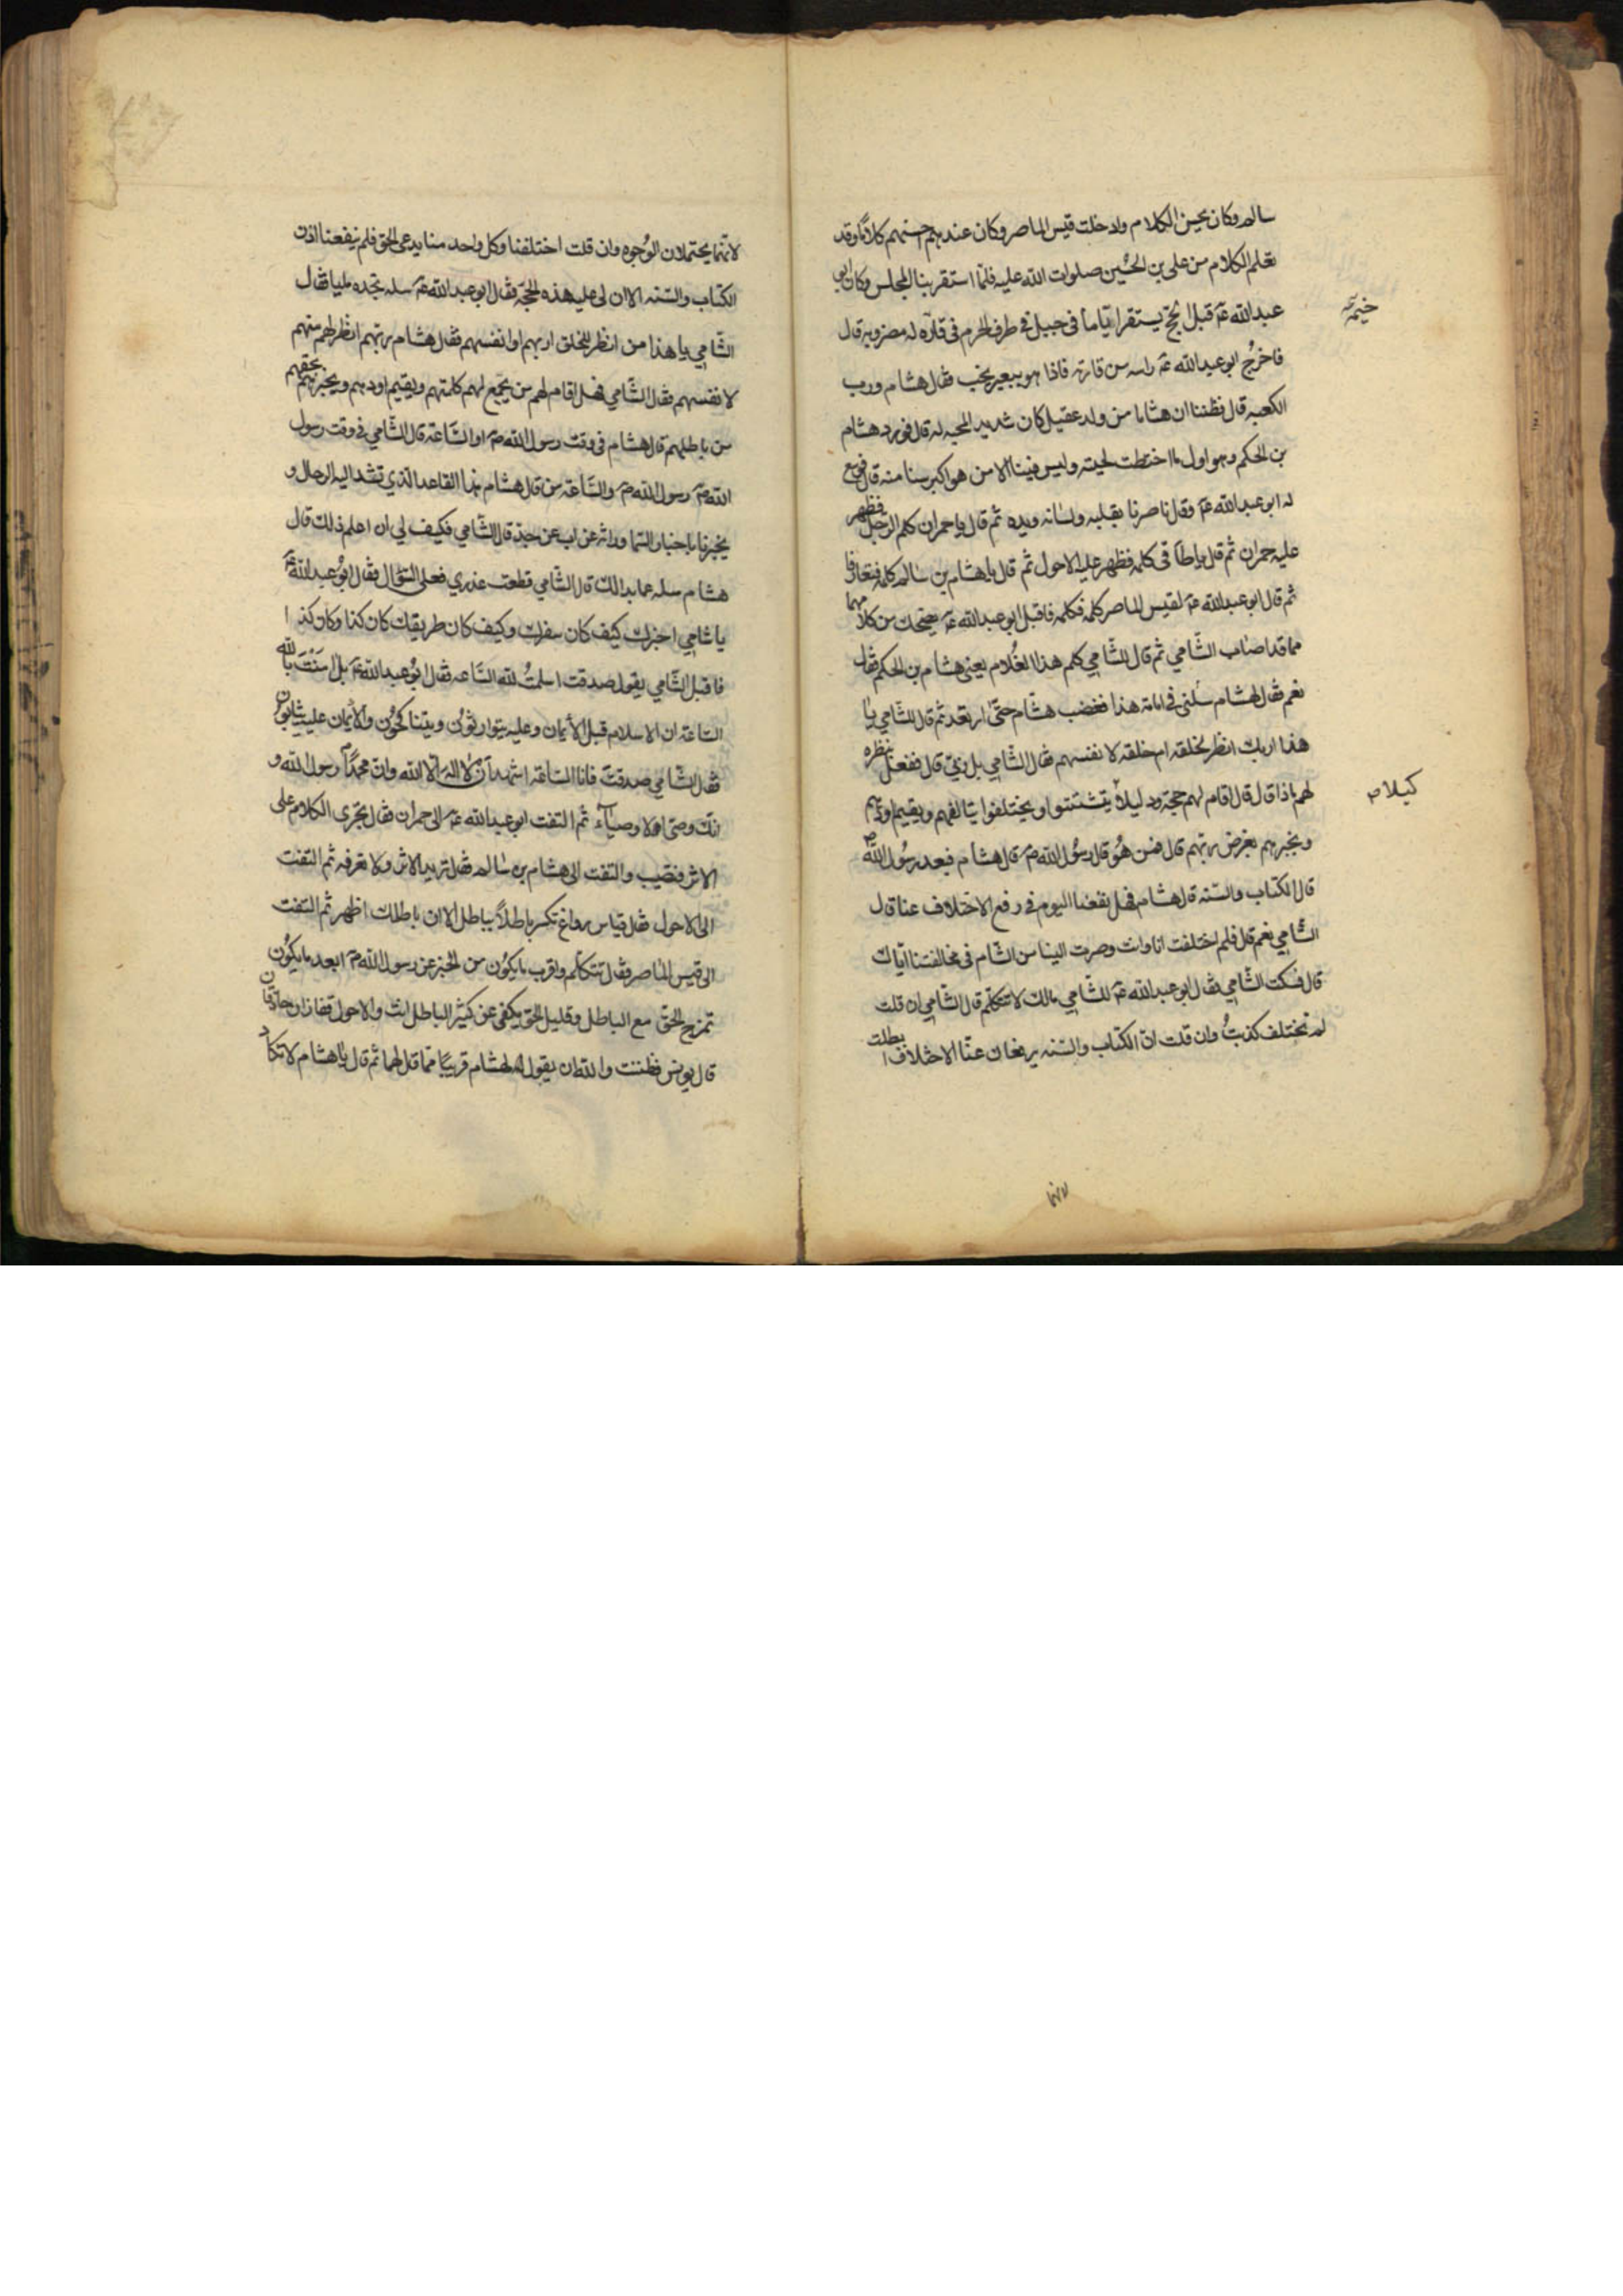 سالم وكان يحسن الكلام وادخلت قيس الماصر وكان عندهم احسنهم كلاما وقد
تعلم الكلام من على بن الحسين صلوات الله عليه فلما استقر بنا المجلس وكان ابو
عبدالله عم قبل الحج يستقر اياما فى جبل فى طرف الحرم فى قازه له مضروبه قال
خيمه
فاخرج ابو عبدالله عم راسه من قازته فاذا هو ببعير يخب فقال هشام ورب
الكعبه قال فظننا ان هشاما من ولد عقيل كان شديد المحبه له قال فورد هشام
بن الحكم وهو اول ما اختطت لحيته وليس فينا الا من هو اكبر سنا منه قال فوسع
له ابو عبدالله عم وقال ناصرنا بقلبه ولسانه ويده ثم قال يا حمران كلم الرجل فظهر
عليه حمران ثم قال يا طاقى كلمه فظهر عليه الاحول ثم قال يا هشام بن سالم كلمه فتعارفا
ثم قال ابو عبدالله عم لقيس الماصر كلمه فكلمه فاقبل ابو عبدالله عم يضحك من كلامهما
مما قد اصاب الشامي ثم قال للشامي كلم هذا الغلام يعنى هشام بن الحكم فقال
نعم فقال لهشام سلنى فى امامة هذا فغضب هشام حتى ارتعد ثم قال للشامي يا
هذا اربك انظر لخلقه ام خلقه لانفسهم فقال الشامي بل ربي قال ففعل بنظره
لهم ماذا قال قال اقام لهم حجة ودليلا يتشتتوا او يختلفوا يتالفهم ويقيم اودهم
كيلا م
ويخبرهم بفرض ربهم قال فمن هو قال رسول الله ص قال هشام فبعد رسول الله ص
قال الكتاب والسنه قال هشام فهل نفعنا اليوم فى رفع الاختلاف عنا قال
الشامي نعم قال فلم اختلفت انا وانت وصرت الينا من الشام فى مخالفتنا اياك
قال فسكت الشامي فقال ابو عبدالله عم للشامي مالك لا تتكلم قال الشامي ان قلت
لم نختلف كذبت وان قلت ان الكتاب والسنه يرفعان عنا الاختلاف ابطلت
لانهما
لانهما يحتملان الوجوه وان قلت اختلفنا وكل واحد منا يدعى الحق فلم ينفعنا اذن
الكتاب والسنه الا ان لى عليه هذه الحجة فقال ابو عبدالله عم سله تجده مليا فقال
الشامي يا هذا من انظر للخلق اربهم او انفسهم فقال هشام ربهم انظر لهم منهم
لانفسهم فقال الشامي فهل اقام لهم من يجمع لهم كلمتهم ويقيم اودهم ويخبرهم بحقهم
من باطلهم قال هشام فى وقت رسول الله ص او الساعة قال الشامي فى وقت رسول
الله ص رسول الله ص والساعة من قال هشام هذا القاعد الذي تشد اليه الرحال و
يخبرنا باخبار السما وراثة عن اب عن جد قال الشامي فكيف لي ان اعلم ذلك قال
هشام سله عما بدالك قال الشامي قطعت عذري فعلى السؤال فقال ابو عبدالله عم
يا شامي اخبرك كيف كان سفرك وكيف كان طريقك كان كذا وكان كذا
فاقبل الشامي يقول صدقت اسلمت لله الساعه فقال ابو عبدالله عم بل امنت بالله
الساعة ان الاسلام قبل الايمان وعليه يتوارثون ويتناكحون والايمان عليه يثابون
فقال الشامي صدقت فانا الساعة اشهد ان لا اله الا الله وان محمدا رسول الله و
انك وصى الاوصياء ثم التفت ابو عبدالله عم الى حمران فقال تجرى الكلام على
الاثر فتصيب والتفت الى هشام بن سالم فقال تريد الاثر ولا تعرفه ثم التفت
الى الاحول فقال قياس رواغ تكسر باطلا بباطل الا ان باطلك اظهر ثم التفت
الى قيس الماصر فقال تتكلم واقرب ما يكون من الخبر عن رسول الله ص ابعد ما يكون
تمزج الحق مع الباطل وقليل الحق يكفى عن كثير الباطل انت والاحول قفازان حاذقان
قال يونس فظننت والله ان يقول لهشام قريبا مما قال لهما ثم قال يا هشام لا تكاد